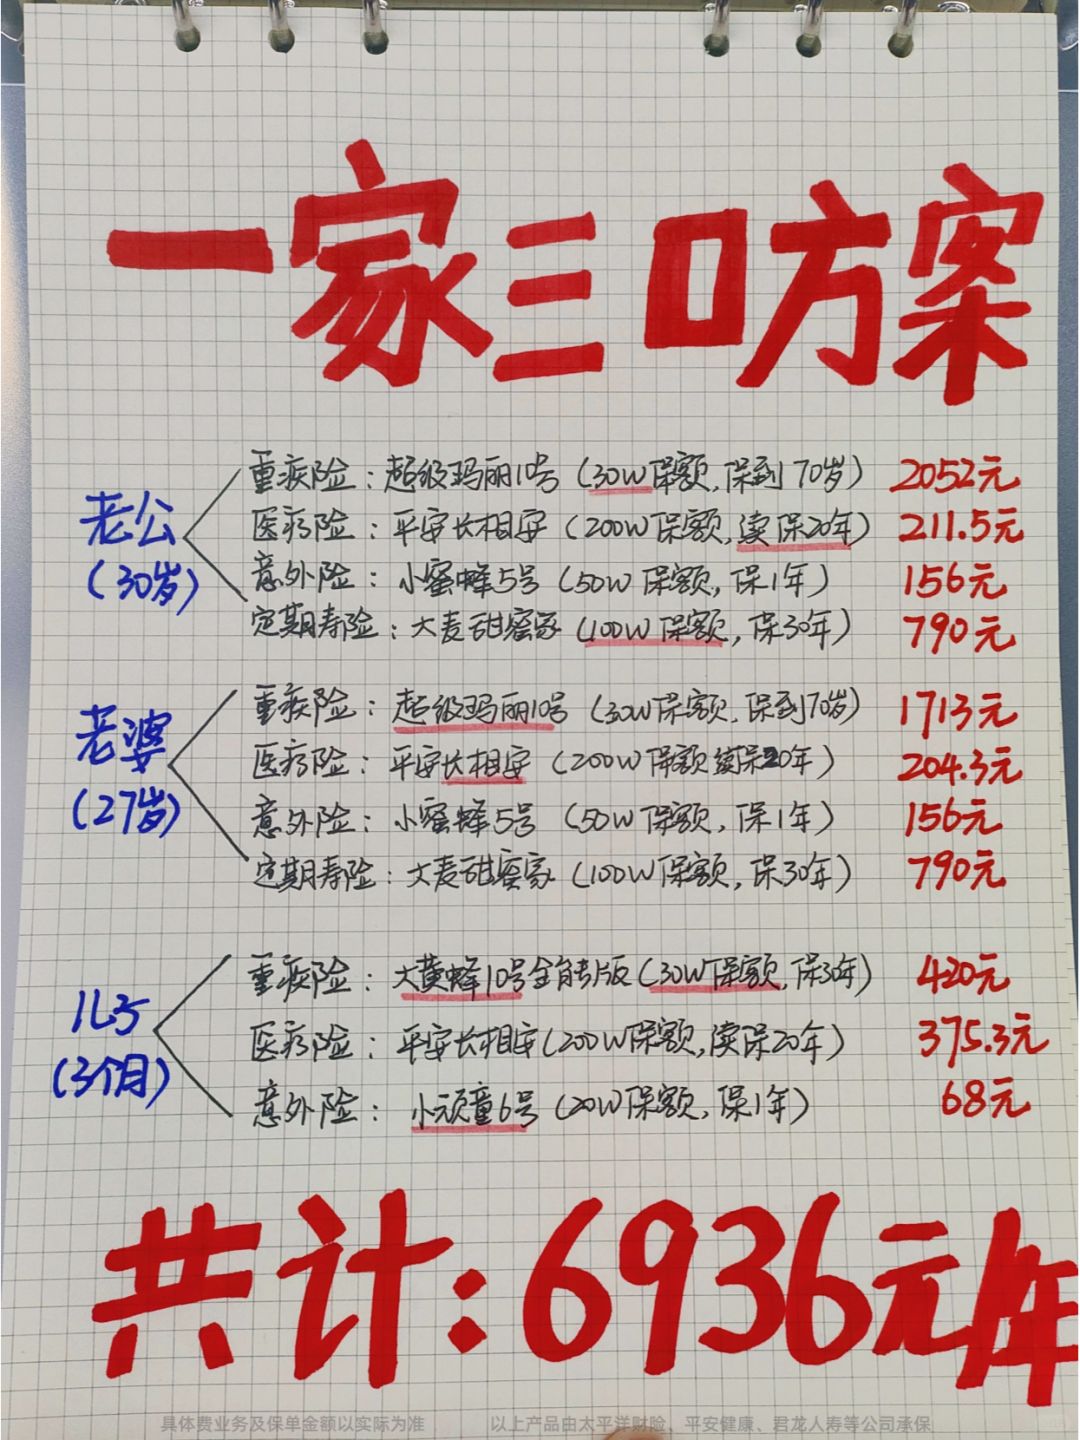 一家三口方案
老公
(30岁)
重疾险：超级玛丽10号（30W保额,保到70岁）2052元
医疗险：平安长相安（200W保额,续保20年）211.5元
意外险：小蜜蜂5号（50W保额,保1年）156元
定期寿险：大麦甜蜜家（100W保额,保30年）790元
老婆
(27岁)
重疾险：超级玛丽10号（30W保额,保到70岁）1713元
医疗险：平安长相安（200W保额续保20年）204.3元
意外险：小蜜蜂5号（50W保额,保1年）156元
定期寿险：大麦甜蜜家（100W保额,保30年）790元
儿子
(3个月)
重疾险：大黄蜂10号全能版（30W保额,保30年）420元
医疗险：平安长相安（200W保额,续保20年）375.3元
意外险：小顽童6号（20W保额,保1年）68元
共计:6936元/年
具体费业务及保单金额以实际为准 以上产品由太平洋财险、平安健康、君龙人寿等公司承保